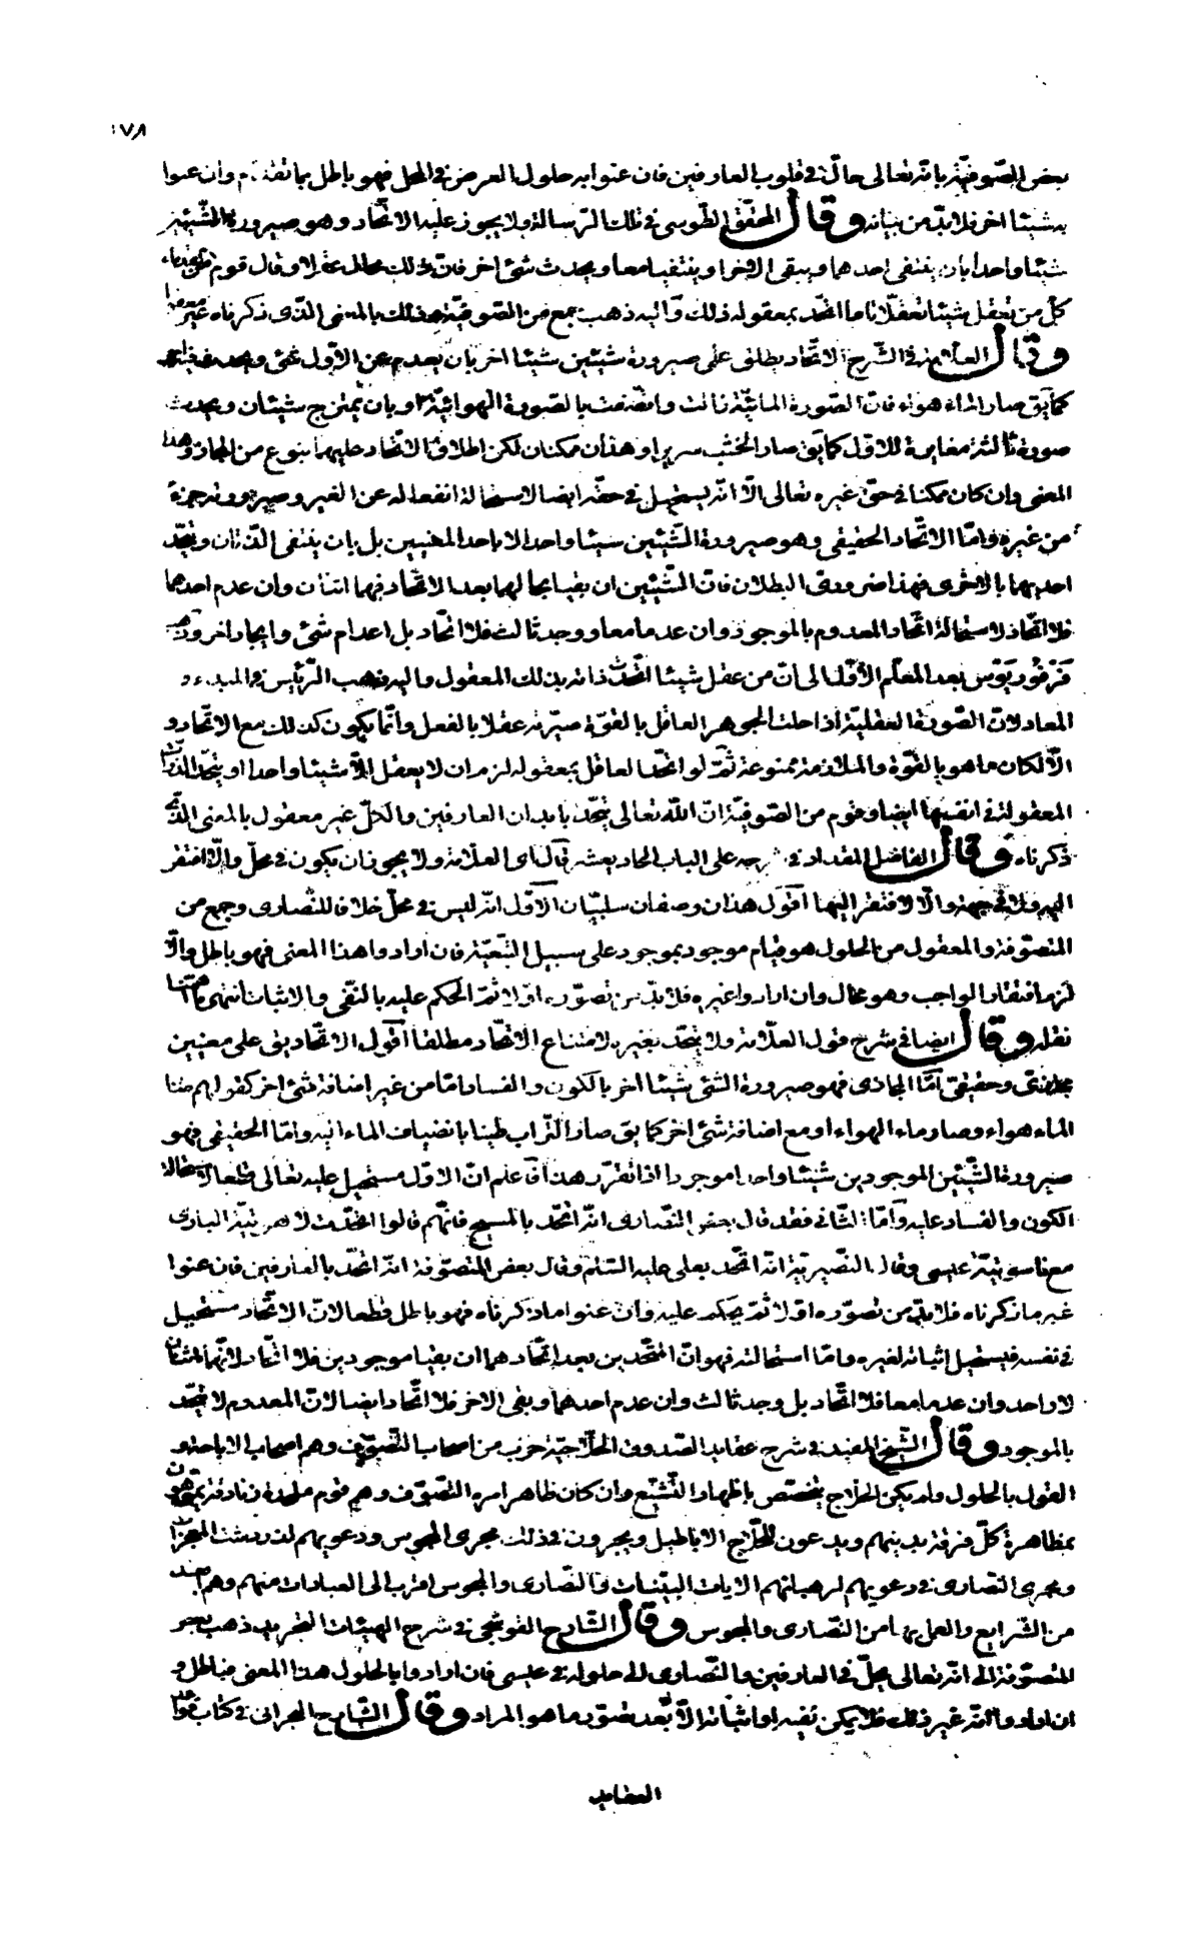 ١٧٨
بعض الصّوفيّة بانّه تعالى حالّ فى قلوب العارفين فان عنوا به حلول العرض فى المحل فهو باطل بما تقدّم وان عنوا
به شيئا اخر فلا بدّ من بيانه وقال المحقّق الطوسى فى تلك الرّسالة ولا يجوز عليه الاتّحاد وهو صيرورة الشّيئين
شيئا واحدا بان ينتفى احدهما ويبقى الاخر او ينتفيا معا ويحدث شئ اخر فان ذلك محال عقلا وقال قوم من القدماء
كلّ من يعقل شيئا تعقّلا تاما اتّحد بمعقوله ذلك واليه ذهب جمع من الصّوفيّة وذلك بالمعنى الذّى ذكرناه غير معقول
وقال العلامة فى الشّرح الاتّحاد يطلق على صيرورة شيئين شيئا اخر بان يعدم عن الاوّل شئ ويحدث فيه
كما يق صار الماء هواء فانّ الصّورة المائيّة زالت واتّصفت بالصّورة الهوائيّة او بان يمتزج شيئان ويحدث
صورة ثالثة مغايرة للاوّل كما يق صار الخشب سريرا وهذان ممكنان لكن اطلاق الاتّحاد عليهما بنوع من المجاز وهذا
المعنى وان كان ممكنا فى حقّ غيره تعالى الّا انّه يستحيل فى حقّه ايضا لاستحالة انفعاله عن الغير وصيرورته جزء
من غيره وامّا الاتّحاد الحقيقى وهو صيرورة الشّيئين شيئا واحدا لا باحد المعنيين بل بان ينتفى الذّاتان ويتّحد
احديهما بالاخرى فهذا ضرورى البطلان فانّ الشّيئين ان بقيا بحالهما بعد الاتّحاد فهما اثنان وان عدم احدهما
فلا اتّحاد لاستحالة اتّحاد المعدوم بالموجود وان عدما معا ووجد ثالث فلا اتّحاد بل اعدام شئ وايجاد اخر وذهب
فرفوريوس بعد المعلّم الاوّل الى انّ من عقل شيئا اتّحدت ذاته بذلك المعقول واليه ذهب الرّئيس فى المبدء و
المعاد لانّ الصّورة العقليّة اذا حلت الجوهر العاقل بالقوّة صيّرته عقلا بالفعل وانّما يكون كذلك مع الاتّحاد و
الّا لكان ما هو بالقوّة والملازمة ممنوعة ثمّ لو اتّحد العاقل بمعقوله لزم ان لا يعقل الّا شيئا واحدا او يتّحد الذّوات
المعقولة فى انفسها ايضا وقوم من الصّوفيّة انّ اللّه تعالى يتّحد بابدان العارفين والكلّ غير معقول بالمعنى الّذى
ذكرناه وقال الفاضل المقداد فى شرحه على الباب الحاديعشر قال اى العلّامة ولا يجوز ان يكون فى محلّ والّا افتقر
اليه ولا فى جهة والّا لافتقر اليها اقول هذان وصفان سلبيّان الاوّل انّه ليس فى محلّ خلافا للنّصارى وجمع من
المتصوّفة والمعقول من الحلول هو قيام موجود بموجود على سبيل التّبعيّة فان ارادوا هذا المعنى فهو باطل والّا
لزم افتقار الواجب وهو محال وان ارادوا غيره فلا بدّ من تصوّره اوّلا ثمّ الحكم عليه بالنّفى والاثبات انتهى ما
نقله وقال ايضا فى شرح قول العلّامة ولا يتّحد بغيره لامتناع الاتّحاد مطلقا اقول الاتّحاد يق على معنيين
مجازى وحقيقى امّا المجازى فهو صيرورة الشئ شيئا اخر بالكون والفساد امّا من غير اضافة شئ اخر كقولهم صار
الماء هواء وصار ماء الهواء او مع اضافة شئ اخر كما يق صار التّراب طينا بانضياف الماء اليه وامّا الحقيقى فهو
صيرورة الشّيئين الموجودين شيئا واحدا موجودا اذا تقرّر هذا فاعلم انّ الاوّل مستحيل عليه تعالى قطعا لاستحالة
الكون والفساد عليه وامّا الثّانى فقد قال بعض النّصارى انّه اتّحد بالمسيح فانّهم قالوا اتّحدت لاهوتيّة البارى
مع ناسوتيّة عيسى وقال النّصيريّة انّه اتّحد بعلى عليه السّلم وقال بعض المتصوّفة انّه اتّحد بالعارفين فان عنوا
غير ما ذكرناه فلا بدّ من تصوّره اوّلا ثمّ يحكم عليه وان عنوا ما ذكرناه فهو باطل قطعا لانّ الاتّحاد مستحيل
فى نفسه فيستحيل اثباته لغيره وامّا استحالته فهو انّ المتّحدين بعد اتّحادهما ان بقيا موجودين فلا اتّحاد لانّهما اثنان
لا واحد وان عدما معا فلا اتّحاد بل وجد ثالث وان عدم احدهما وبقى الاخر فلا اتّحاد ايضا لانّ المعدوم لا يتّحد
بالموجود وقال الشّيخ المفيد فى شرح عقايد الصّدوق الحلّاجيّة ضرب من اصحاب التّصوّف وهم اصحاب الاباحة و
القول بالحلول ولم يكن الحلاج يتخصّص باظهار التّشيّع وان كان ظاهر امره التّصوّف وهم قوم ملحدة وزنادقة يموّهون
بمظاهرة كلّ فرقة بدينهم ويدعون للحلّاج الاباطيل ويجرون فى ذلك مجرى المجوس ودعويهم لزردشت المعجزات
ومجرى النّصارى فى دعويهم لرهبانهم الايات البيّنات والنّصارى والمجوس اقرب الى العبادات منهم وهم ابعد
من الشّرايع والعمل بها من النّصارى والمجوس وقال الشّارح القوشجى فى شرح الهيئات التّجريد ذهب بعض
المتصوّفة الى انّه تعالى يحلّ فى العارفين والنّصارى الى حلوله فى عيسى فان ارادوا بالحلول هذا المعنى فباطل و
ان ارادوا انّه غير ذلك فلا يمكن نفيه او اثباته الّا بعد تصوّر ما هو المراد وقال الشّارح البحرانى فى كتاب قواعد
العقايد